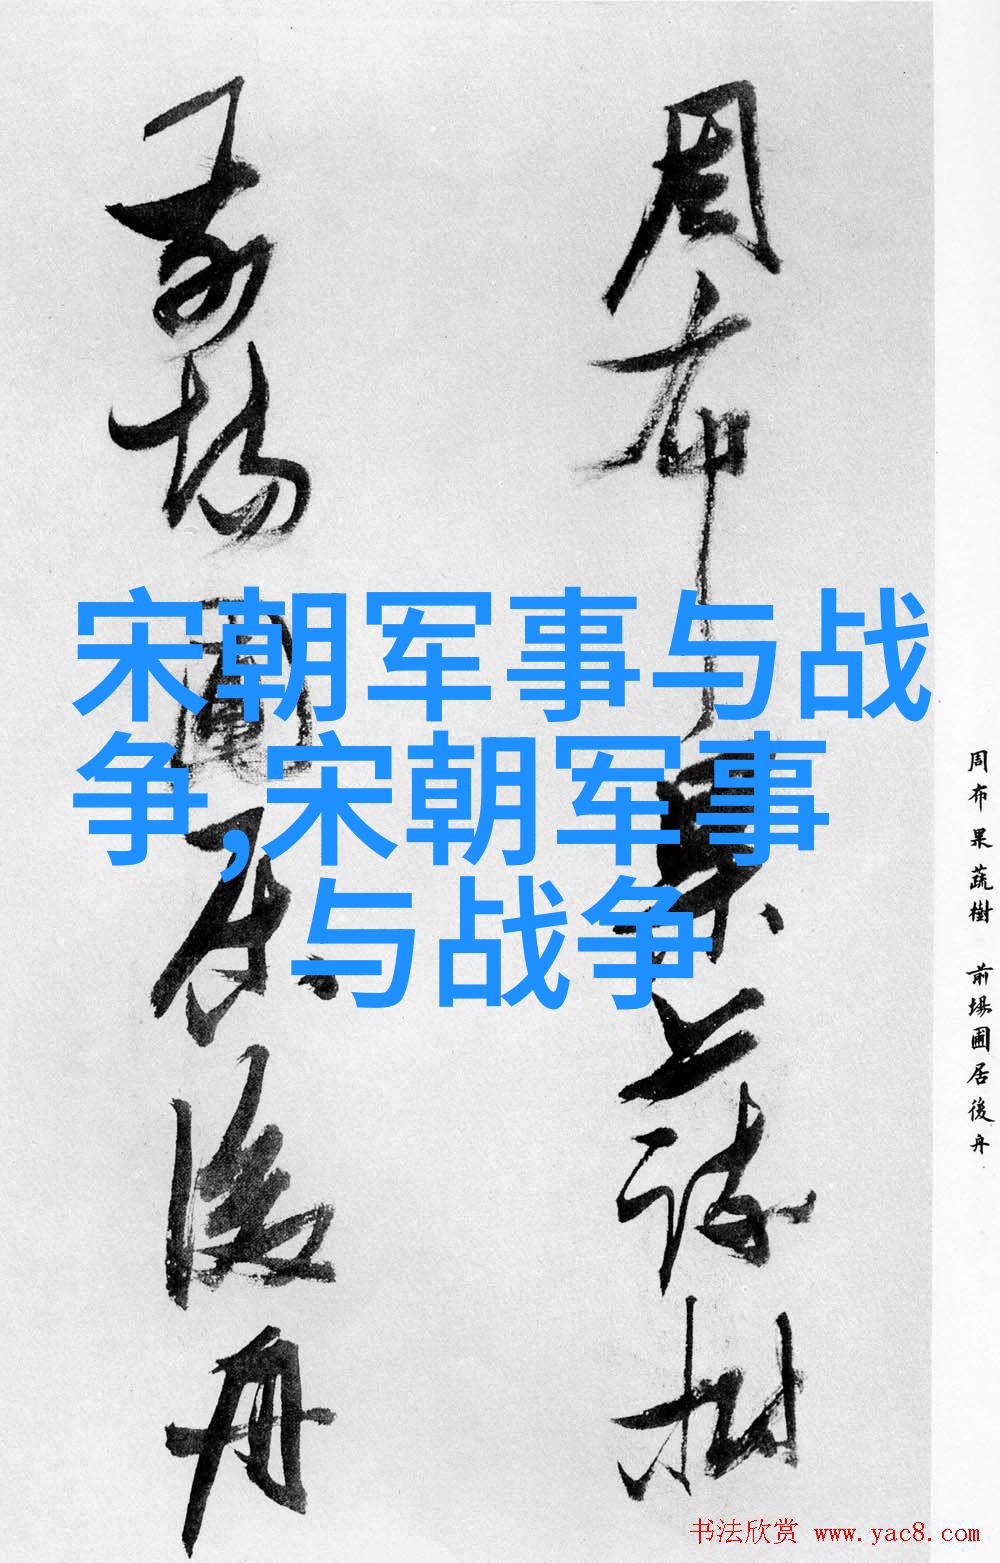 周布果蔬樹
前場圃居後舟
宋朝军事与战
争,宋朝军事
与战争
周布果蔬樹 前場圃居後舟
书法欣赏 www.yac8.com